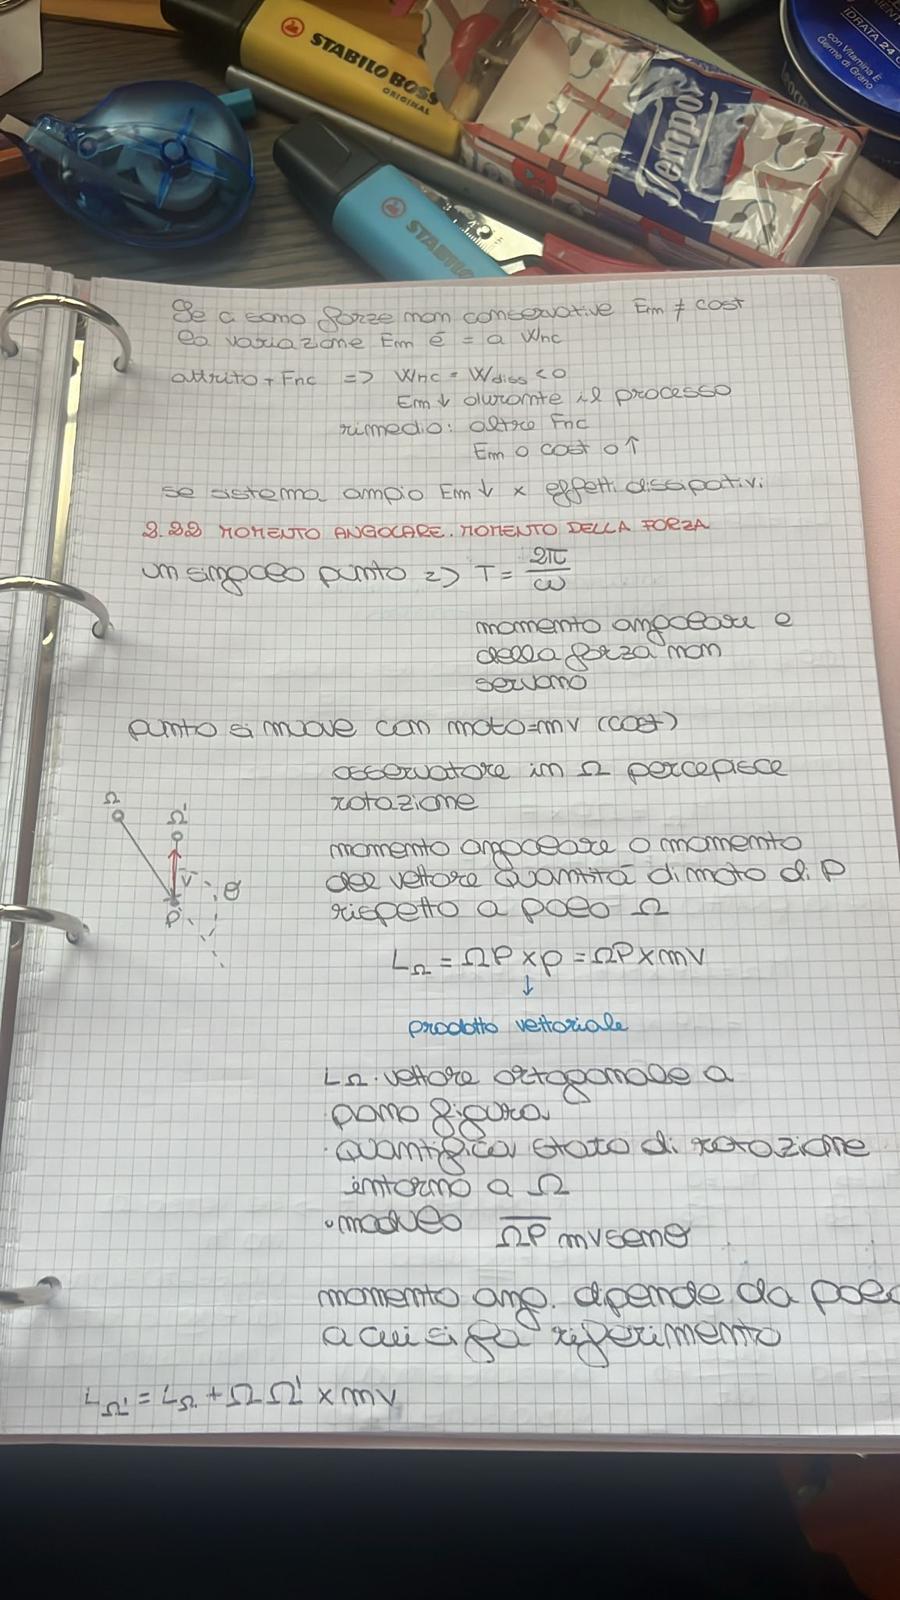 IDRATA 24
con Vitamina E
Germe di Grano
STABILO BOSS
ORIGINAL
Tempo
STABILO
Se ci sono forze non conservative Em ≠ cost
la variazione Em é = a Wnc
attrito + Fnc => Wnc = Wdiss < 0
Em ↓ durante il processo
rimedio: altre Fnc
Em o cost o ↑
se sistema ampio Em ↓ x effetti dissipativi
2.22 MOMENTO ANGOLARE. MOMENTO DELLA FORZA
un singolo punto => T = 2π/ω
momento angolare e
della forza non
servono
punto si muove con moto=mv (cost)
osservatore in Ω percepisce
rotazione
Ω
Ω'
v
θ
P
momento angolare o momento
del vettore quantitá di moto di P
rispetto a polo Ω
LΩ = ΩP x p = ΩP x mv
↓
prodotto vettoriale
LΩ · vettore ortogonale a
piano figura
· quantifica stato di rotazione
intorno a Ω
· modulo ΩP mv senθ
momento ang. dipende da polo
a cui si fa riferimento
LΩ' = LΩ + ΩΩ' x mv